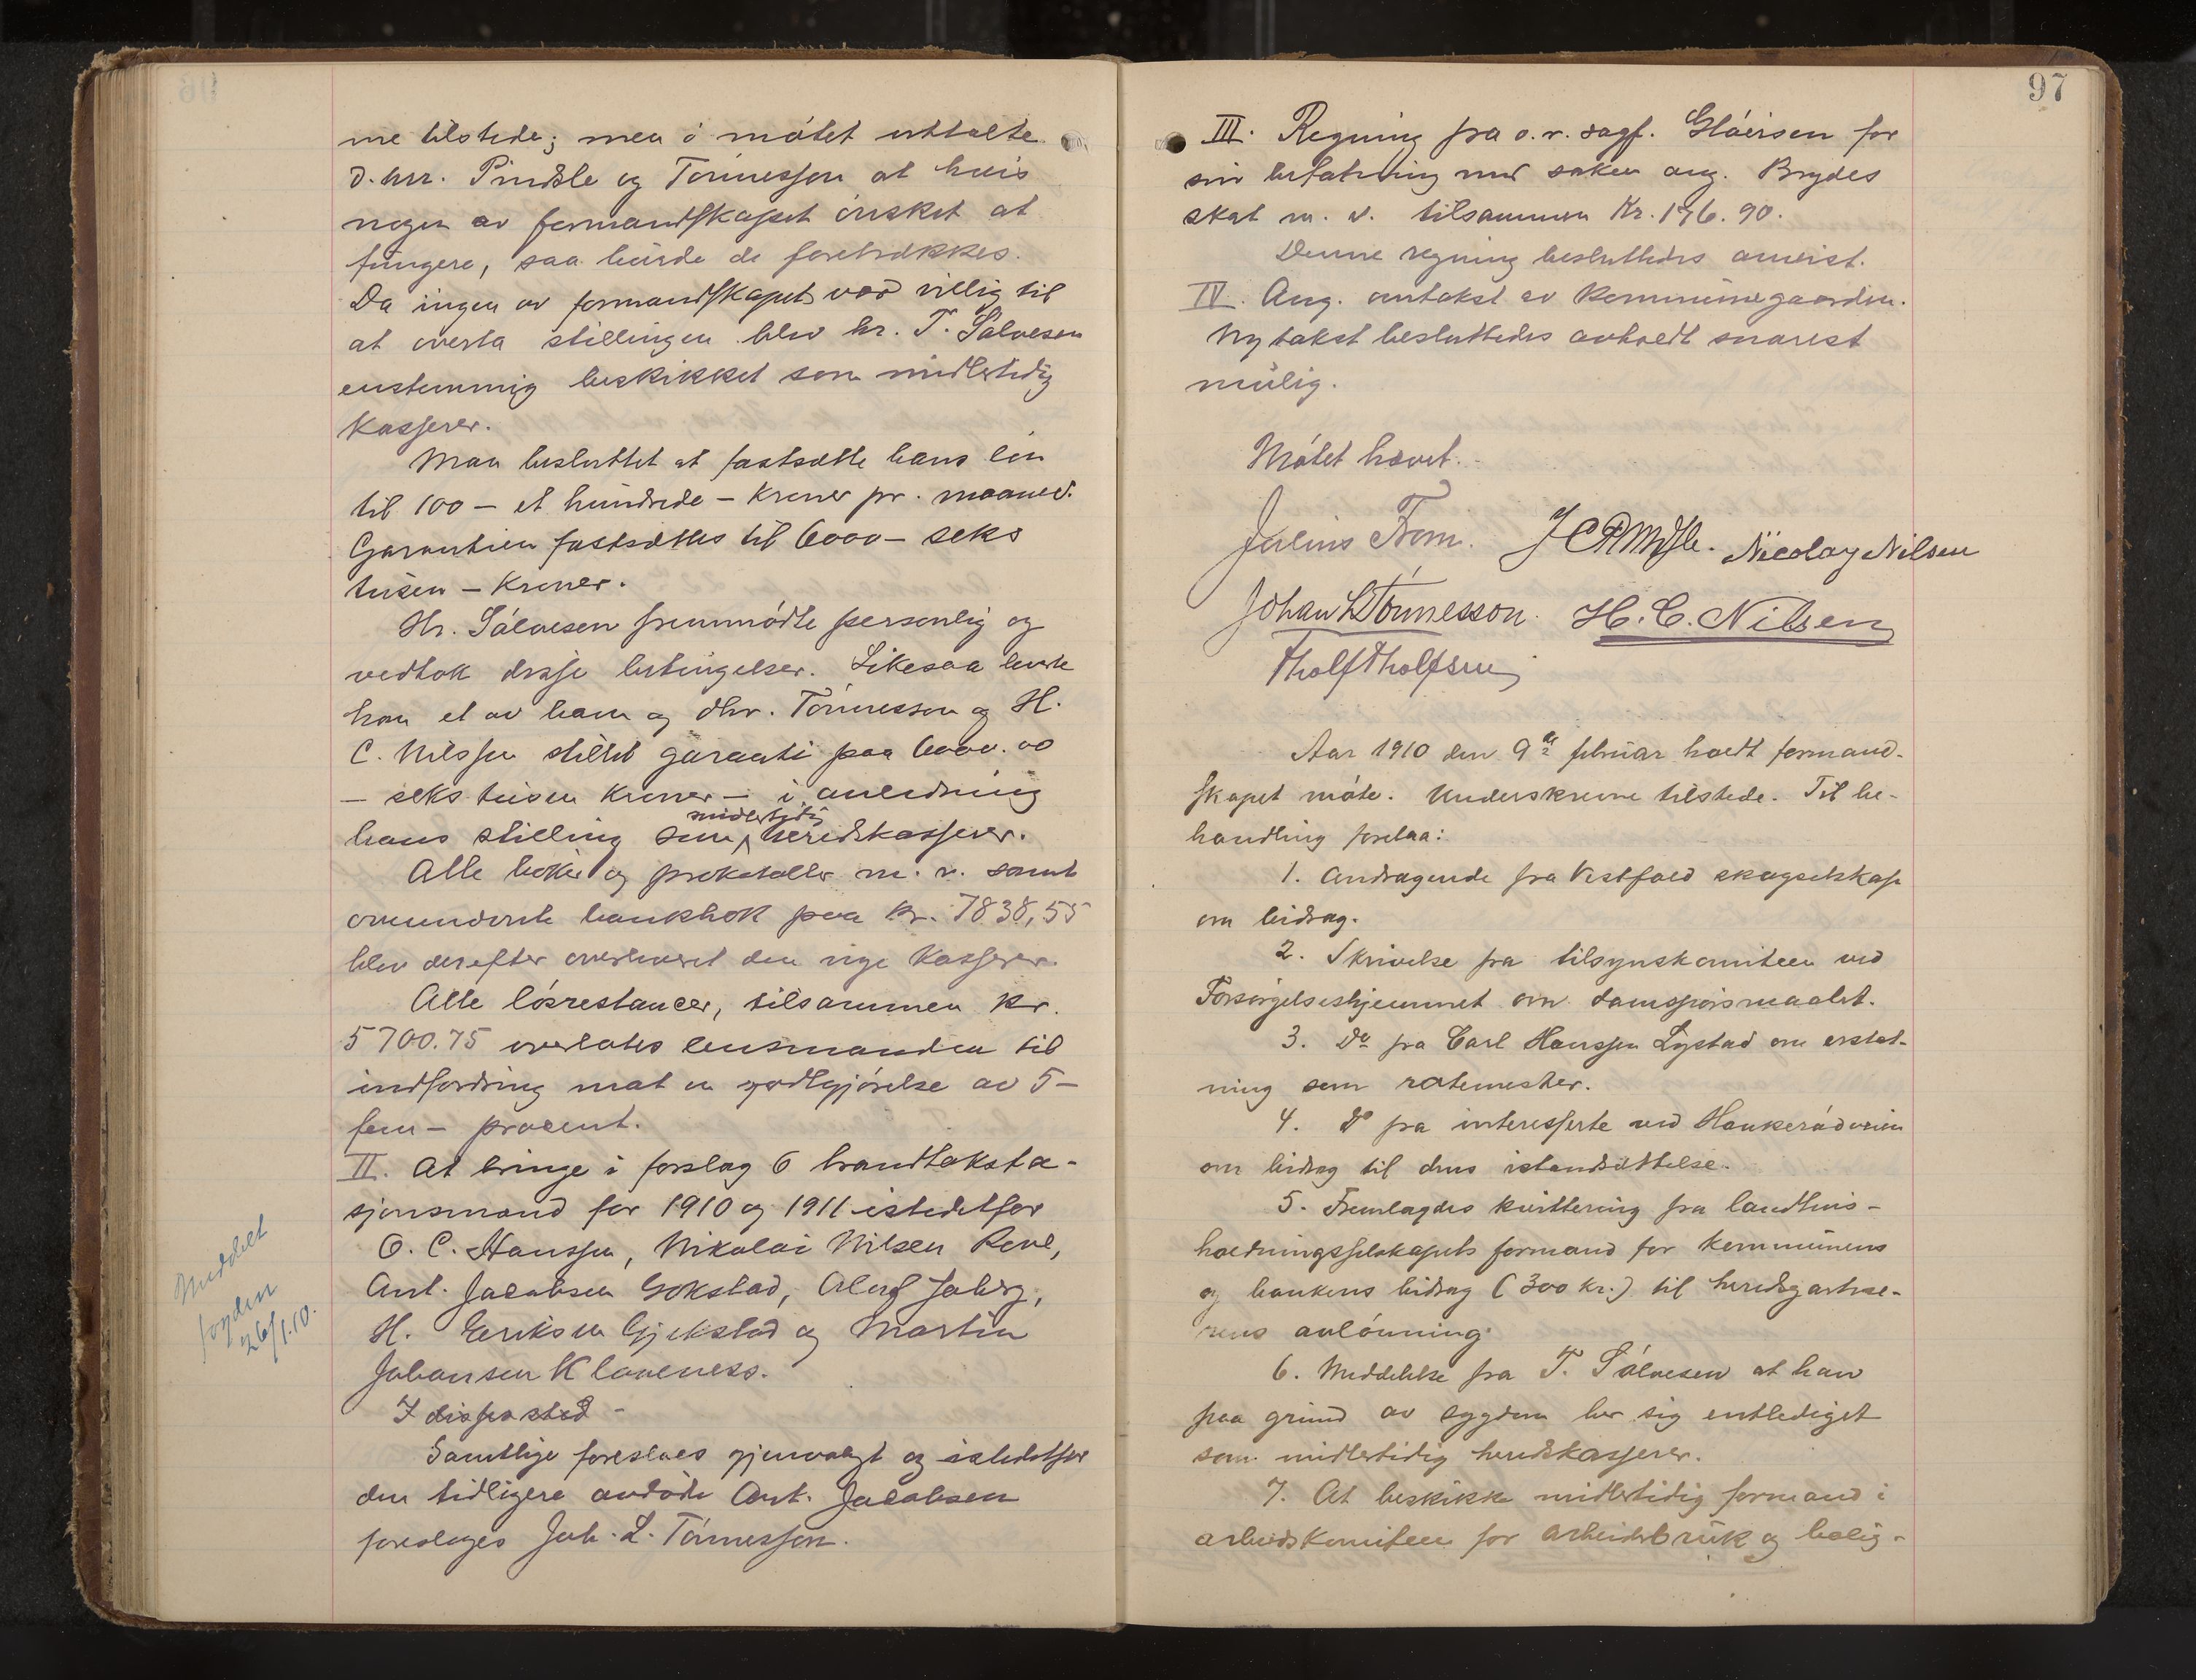 ne tilstede; men i mötet uttalte
d.hrr. Pindsle og Tönnessen at hvis
nogen av formandskapet önsket at
fungere, saa burde de foretrækkes.
Da ingen av formandskapet var villig til
at overta stillingen blev hr. T. Sölvesen
enstemmig beskikket som midlertidig
kasserer.
Man besluttet at fastsætte hans lön
til 100 – et hundrede – kroner pr. maaned.
Garantien fastsættes til 6000 – seks
tusen – kroner.
Hr. Sölvesen fremmödte personlig og
vedtok disse betingelser. Likesaa leverte
han et av ham og dhr. Tönnesson og H.
C. Nilssen stillet garanti paa 6000.00
– seks tusen kroner – i anledning
hans stilling som midlertidig heredskasserer.
Alle böker og protokoller m. v. samt
bankbok paa kr. 7838,55
blev derefter overleveret den nye kasserer.
Alle lösrestancer, tilsammen kr.
5700.75 overlates lensmanden til
indfordring mot en godtgjörelse av 5 –
fem – procent.
II. At bringe i forslag 6 brandtaksta-
sjonsmænd for 1910 og 1911 istedetfor
O. C. Hanssen, Nikolai Nilsen Rove,
Ant. Jacobsen Gokstad, Oluf Joberg,
H. Eriksen Gjekstad og Martin
Johansen Klaveness.
I disse sted –
Samtlige foreslaaes gjenvalgt og istedetfor
den tidligere avdöde Ant. Jacobsen
foreslages Joh. L. Tönnessen.
Meddelt
fogden
26/1.10.
97
III. Regning fra o.r.sagf. Glöersen for
sin befatning med saken ang. Brydes
skat m. v. tilsammen Kr. 196.90.
Denne regning besluttedes anvist.
IV. Ang. omtakst av kommunegaarden.
Ny takst besluttedes avholdt snarest
mulig.
Mötet hævet.
Julius From. J C Pindsle. Nicolay Nilsen
Johan L Tönnesson. H. C. Nilsen
Tholf Tholfsen
Aar 1910 den 9de februar holdt formand-
skapet möte. Underskrevne tilstede. Til be-
handling forelaa:
1. Andragende fra Vestfold skogselskap
om bidrag.
2. Skrivelse fra tilsynskomiteen ved
Forsörgelseshjemmet om damspörsmaalet.
3. Do fra Carl Hanssen Lystad om erstat-
ning som rotemester.
4. Do fra interesserte ved Haukerödveien
om bidrag til dens istandsættelse.
5. Fremlagdes kvittering fra landhus-
holdningsselskapets formand for kommunens
og bankens bidrag (300 kr.) til heredsgartne-
rens avlönning.
6. Meddelelse fra T. Sölvesen at han
paa grund av sygdom ber sig entlediget
som midlertidig heredskasserer.
7. At beskikke midlertidig formand i
arbeidskomiteen for arbeidsbruk og bolig-